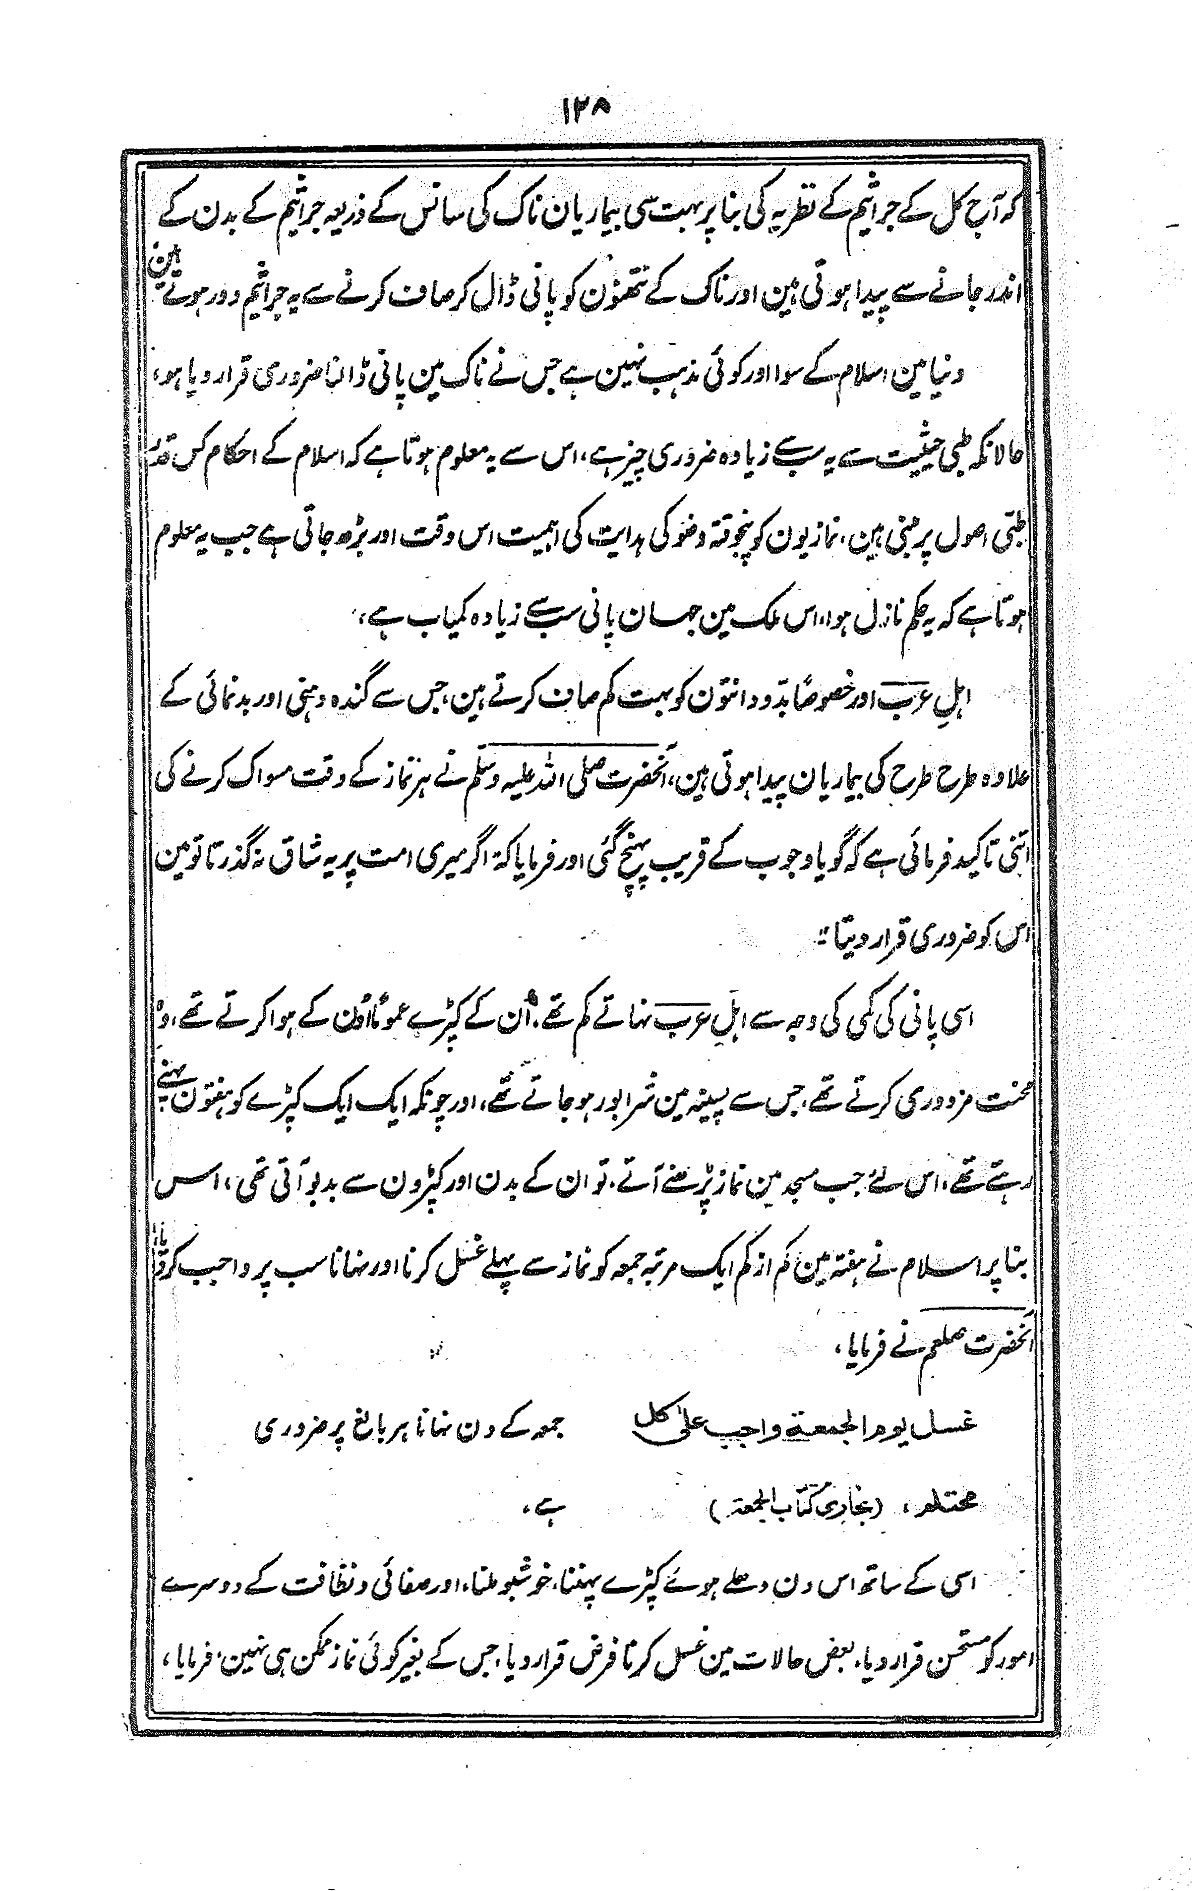 ۱۲۸
کہ آج کل کے جراثیم کے نظریہ کی بنا پر بہت سی بیماریان ناک کی سانس کے ذریعہ جراثیم کے بدن کے
اندر جانے سے پیدا ہوتی ہین اور ناک کے نتھنون کو پانی ڈال کر صاف کرنے سے یہ جراثیم دور ہوتے ہین
دنیا مین اسلام کے سوا اور کوئی مذہب نہین ہے جس نے ناک مین پانی ڈالنا ضروری قرار دیا ہو،
حالانکہ طبی حیثیت سے یہ سب سے زیادہ ضروری چیز ہے، اس سے یہ معلوم ہوتا ہے کہ اسلام کے احکام کس قدر
طبّی اصول پر مبنی ہین، نمازیون کو پنجوقتہ وضو کی ہدایت کی اہمیت اس وقت اور بڑھ جاتی ہے جب یہ معلوم
ہوتا ہے کہ یہ حکم نازل ہوا، اس ملک مین جہان پانی سب سے زیادہ کمیاب ہے،
اہلِ عرب اور خصوصًا بدّو دانتون کو بہت کم صاف کرتے ہین، جس سے گندہ دہنی اور بدنمائی کے
علاوہ طرح طرح کی بیماریان پیدا ہوتی ہین، آنحضرت صلی اللہ علیہ وسلم نے ہر نماز کے وقت مسواک کرنے کی
اتنی تاکید فرمائی ہے کہ گویا وجوب کے قریب پہنچ گئی اور فرمایا کہ اگر میری امت پر یہ شاق نہ گذرتا تو مین
اس کو ضروری قرار دیتا"
اسی پانی کی کمی کی وجہ سے اہلِ عرب نہاتے کم تھے، اُن کے کپڑے عمومًا اُون کے ہوا کرتے تھے، وہ
محنت مزدوری کرتے تھے، جس سے پسینہ مین شرابور ہو جاتے تھے، اور چونکہ ایک ایک کپڑے کو ہفتون پہنے
رہتے تھے، اس لئے جب مسجد مین نماز پڑھنے آتے، تو ان کے بدن اور کپڑون سے بدبو آتی تھی، اس
بنا پر اسلام نے ہفتہ مین کم از کم ایک مرتبہ جمعہ کو نماز سے پہلے غسل کرنا اور نہانا سب پر واجب کر دیا،
آنحضرت صلعم نے فرمایا،
غسل یوم الجمعۃ واجب علیٰ کل جمعہ کے دن نہانا ہر بالغ پر ضروری
محتلم، (بخاری کتاب الجمعۃ) ہے،
اسی کے ساتھ اس دن دھلے ہوئے کپڑے پہننا، خوشبو ملنا، اور صفائی و نظافت کے دوسرے
امور کو مستحسن قرار دیا، بعض حالات مین غسل کرنا فرض قرار دیا، جس کے بغیر کوئی نماز ممکن ہی نہین، فرمایا،